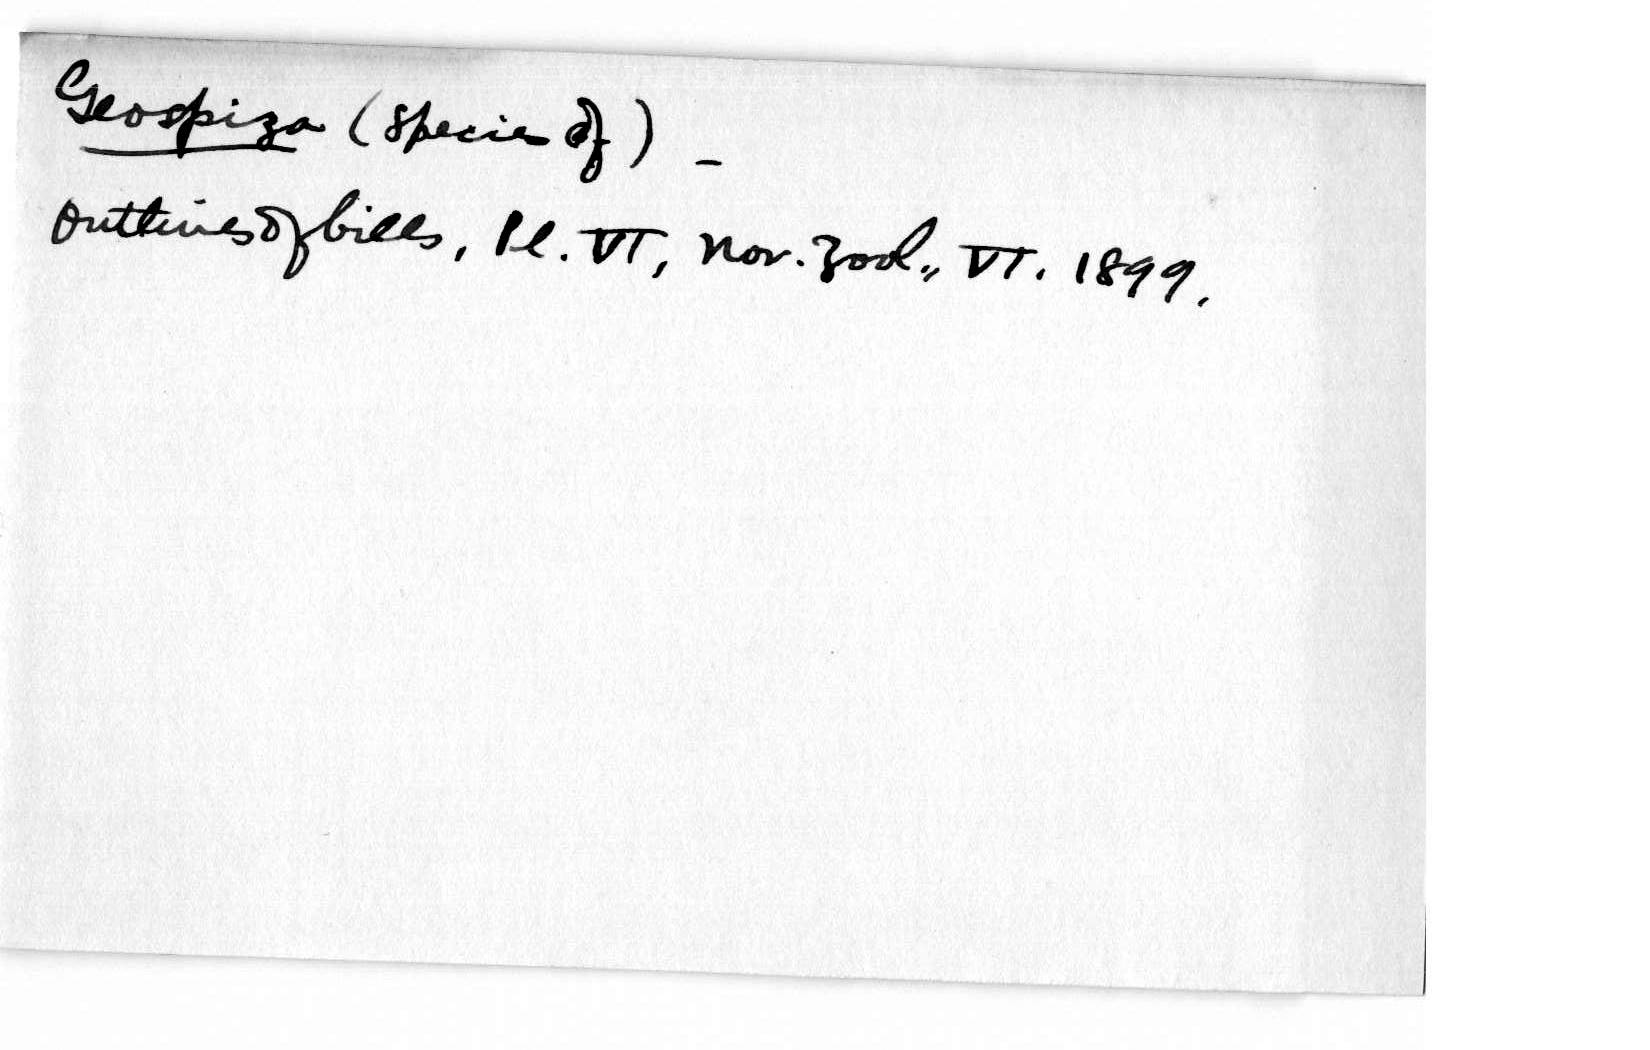 Geospiza (species of) -
Outlines of bills, Pl. VI, Nov. Zool., VI. 1899.